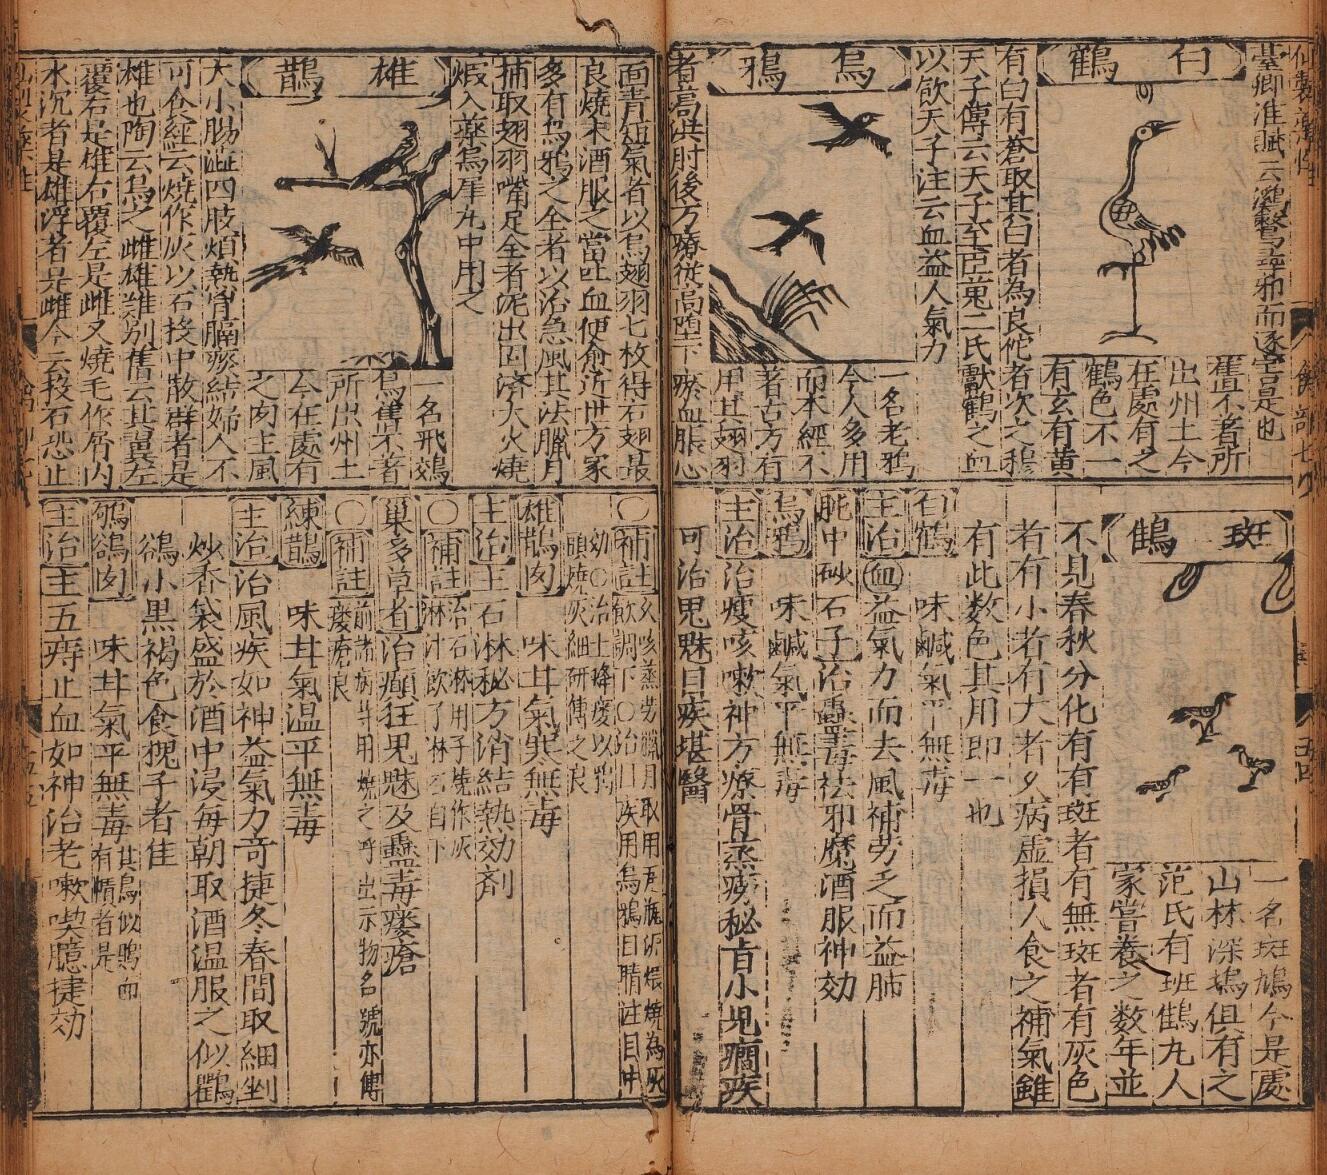 臺卿淮賦云鸂鶒尋邪而逐害是也
白鶴
舊不著所
出州土今
在處有之
鶴色不一
有玄有黄
有白有蒼取其白者為良佗者次之穆
天子傳云天子至巨蒐二氏獻鶴之血
以飲天子注云血益人氣力
烏鴉
一名老鴉
今人多用
而本經不
著古方有
用其翅羽
者葛洪肘後方療從高墮下瘀血脹心
面青短氣者以烏翅羽七枚得右翅最
良燒末酒服之當吐血便愈近世方家
多有烏鴉之全者以治急風其法臘月
捕取翅羽嘴足全者泥缶固濟大火燒
煆入藥烏犀丸中用之
雄鵲
一名飛鵁
鳥舊不著
所出州土
今在處有
之肉主風
大小腸澁四肢煩熱胷膈痰結婦人不
可食經云燒作灰以石投中散群者是
雄也陶云鳥之雌雄難別舊云其翼左
覆右是雄右覆左是雌又燒毛作屑内
水沉者是雄浮者是雌今云投石恐止
斑鶴
一名斑鳩今是處
山林深塢俱有之
范氏有班鶴九人
家嘗養之數年並
不見春秋分化有有斑者有無斑者有灰色
者有小者有大者久病虛損人食之補氣雖
有此数色其用即一也
白鶴 味鹹氣平無毒
主治血益氣力而去風補劳乏而益肺
肫中砂石子治蠱毒祛邪魔酒服神効
烏鴉 味鹹氣平無毒
主治治瘦咳嗽神方療骨蒸痨秘㫖小児癎疾
可治鬼魅目疾堪醫
○補註久咳蒸劳臘月取用
雄鵲肉 味甘氣寒無毒
主治主石淋秘方消結熱効剤
○補註治石淋用子燒作灰
淋汁飲了淋石自下
巢多年者治癲狂鬼魅及蠱毒瘻瘡
○補註前諸病并用燒之呼出示物名號亦傅
瘻瘡良
練鵲 味甘氣温平無毒
主治治風疾如神益氣力竒捷冬春間取細剉
炒香袋盛於酒中浸每朝取酒温服之似鸜
鵒小黒褐色食槐子者佳
鸲鵒肉 味甘氣平無毒其鳥似鵙而
有幘者是
主治主五痔止血如神治老嗽喫臆捷効